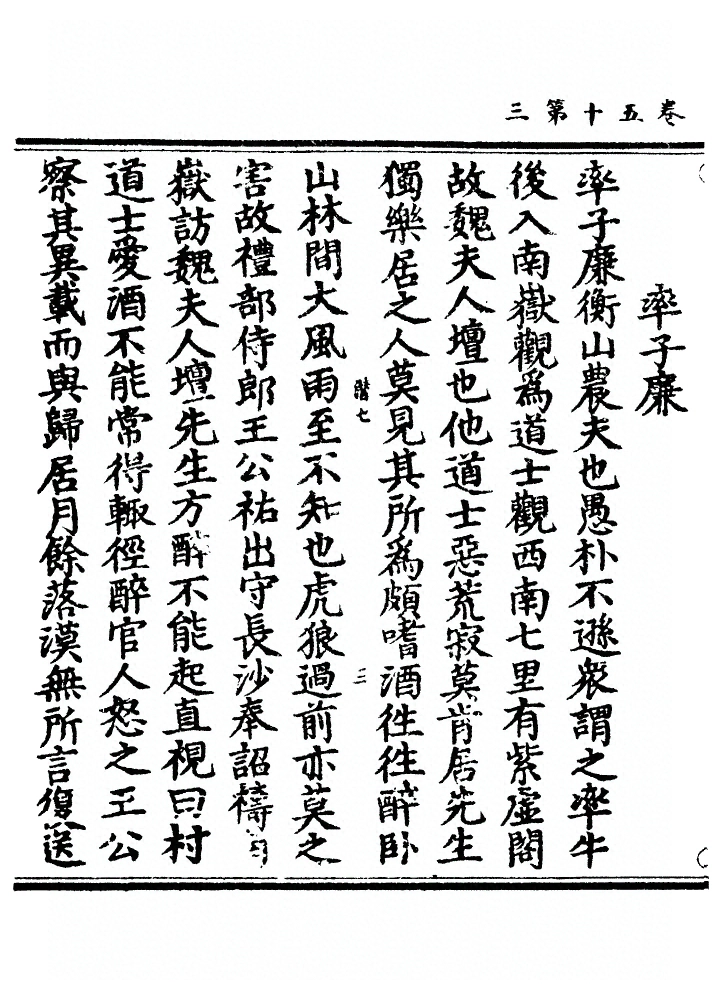 卷五十第三
率子廉
率子廉衡山農夫也愚朴不遜衆謂之率牛
後入南嶽觀爲道士觀西南七里有紫虛閣
故魏夫人壇也他道士惡荒寂莫肯居先生
獨樂居之人莫見其所爲頗嗜酒往往醉卧
三
山林間大風雨至不知也虎狼過前亦莫之
害故禮部侍郎王公祐出守長沙奉詔禱
嶽訪魏夫人壇先生方醉不能起直視曰村
道士愛酒不能常得輙徑醉官人怒之王公
察其異載而與歸居月餘落漠無所言復送